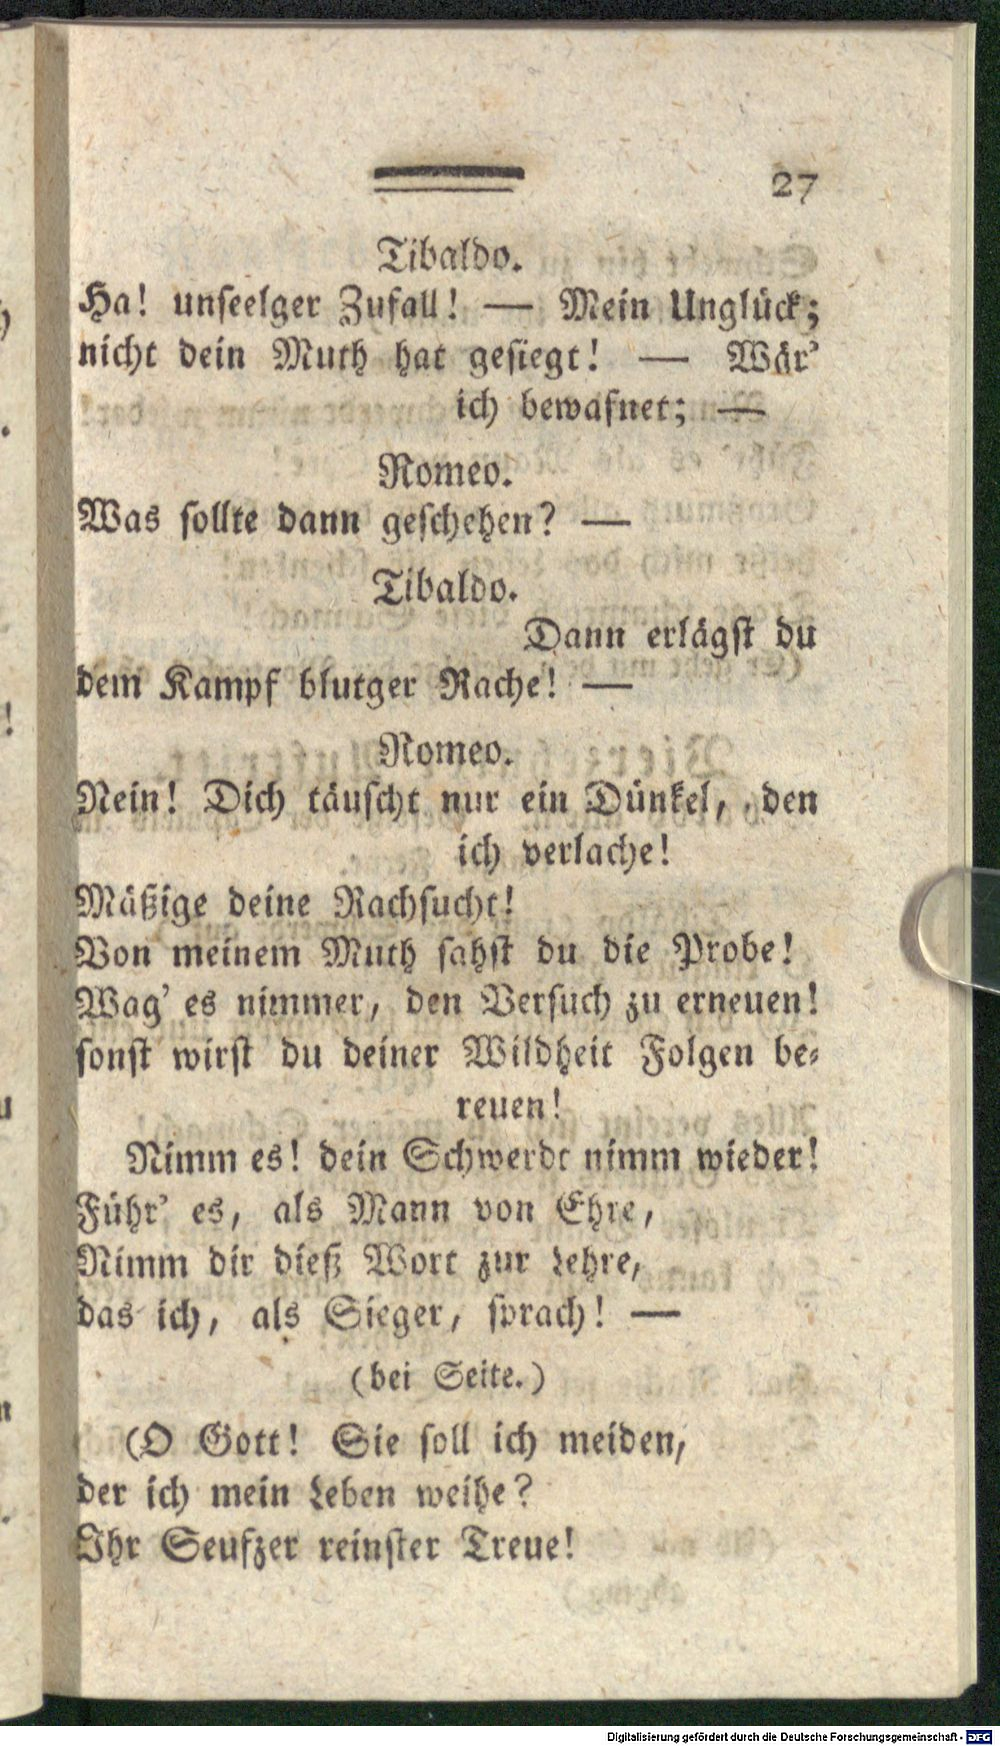 27
Tibaldo.
Ha! unseelger Zufall! — Mein Unglück;
nicht dein Muth hat gesiegt! — Wär'
ich bewafnet; —
Romeo.
Was sollte dann geschehen? —
Tibaldo.
Dann erlägst du
dem Kampf blutger Rache! —
Romeo.
Nein! Dich täuscht nur ein Dünkel, den
ich verlache!
Mäßige deine Rachsucht!
Von meinem Muth sahst du die Probe!
Wag' es nimmer, den Versuch zu erneuen!
sonst wirst du deiner Wildheit Folgen be-
reuen!
Nimm es! dein Schwerdt nimm wieder!
Führ' es, als Mann von Ehre,
Nimm dir dieß Wort zur Lehre,
das ich, als Sieger, sprach! —
(bei Seite.)
(O Gott! Sie soll ich meiden,
der ich mein Leben weihe?
Ihr Seufzer reinster Treue!
Digitalisierung gefördert durch die Deutsche Forschungsgemeinschaft - DFG